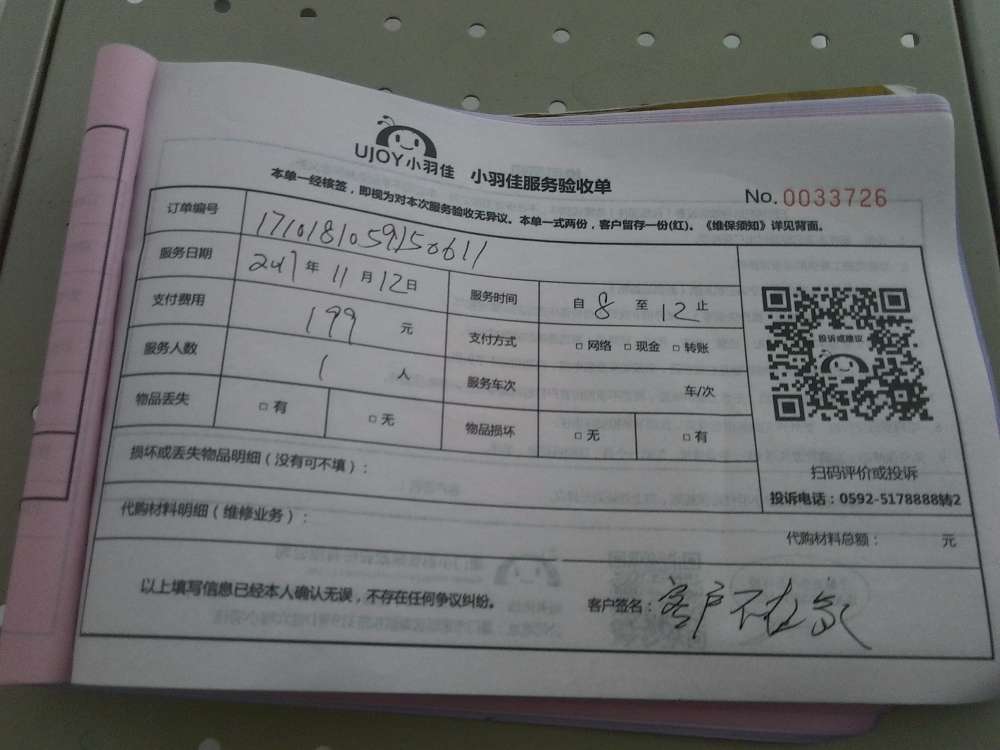 UJOY小羽佳 小羽佳服务验收单
No.0033726
本单一经核签，即视为对本次服务验收无异议。本单一式两份，客户留存一份(红)。《维保须知》详见背面。
订单编号 1710181059150611
服务日期 2017年11月12日 服务时间 自8至12止
支付费用 199元 支付方式 □网络 □现金 □转账
服务人数 1人 服务车次 车/次
物品丢失 □有 □无 物品损坏 □无 □有
投诉或建议
扫码评价或投诉
投诉电话：0592-5178888转2
损坏或丢失物品明细（没有可不填）：
代购材料明细（维修业务）： 代购材料总额： 元
以上填写信息已经本人确认无误，不存在任何争议纠纷。 客户签名：客户不在家